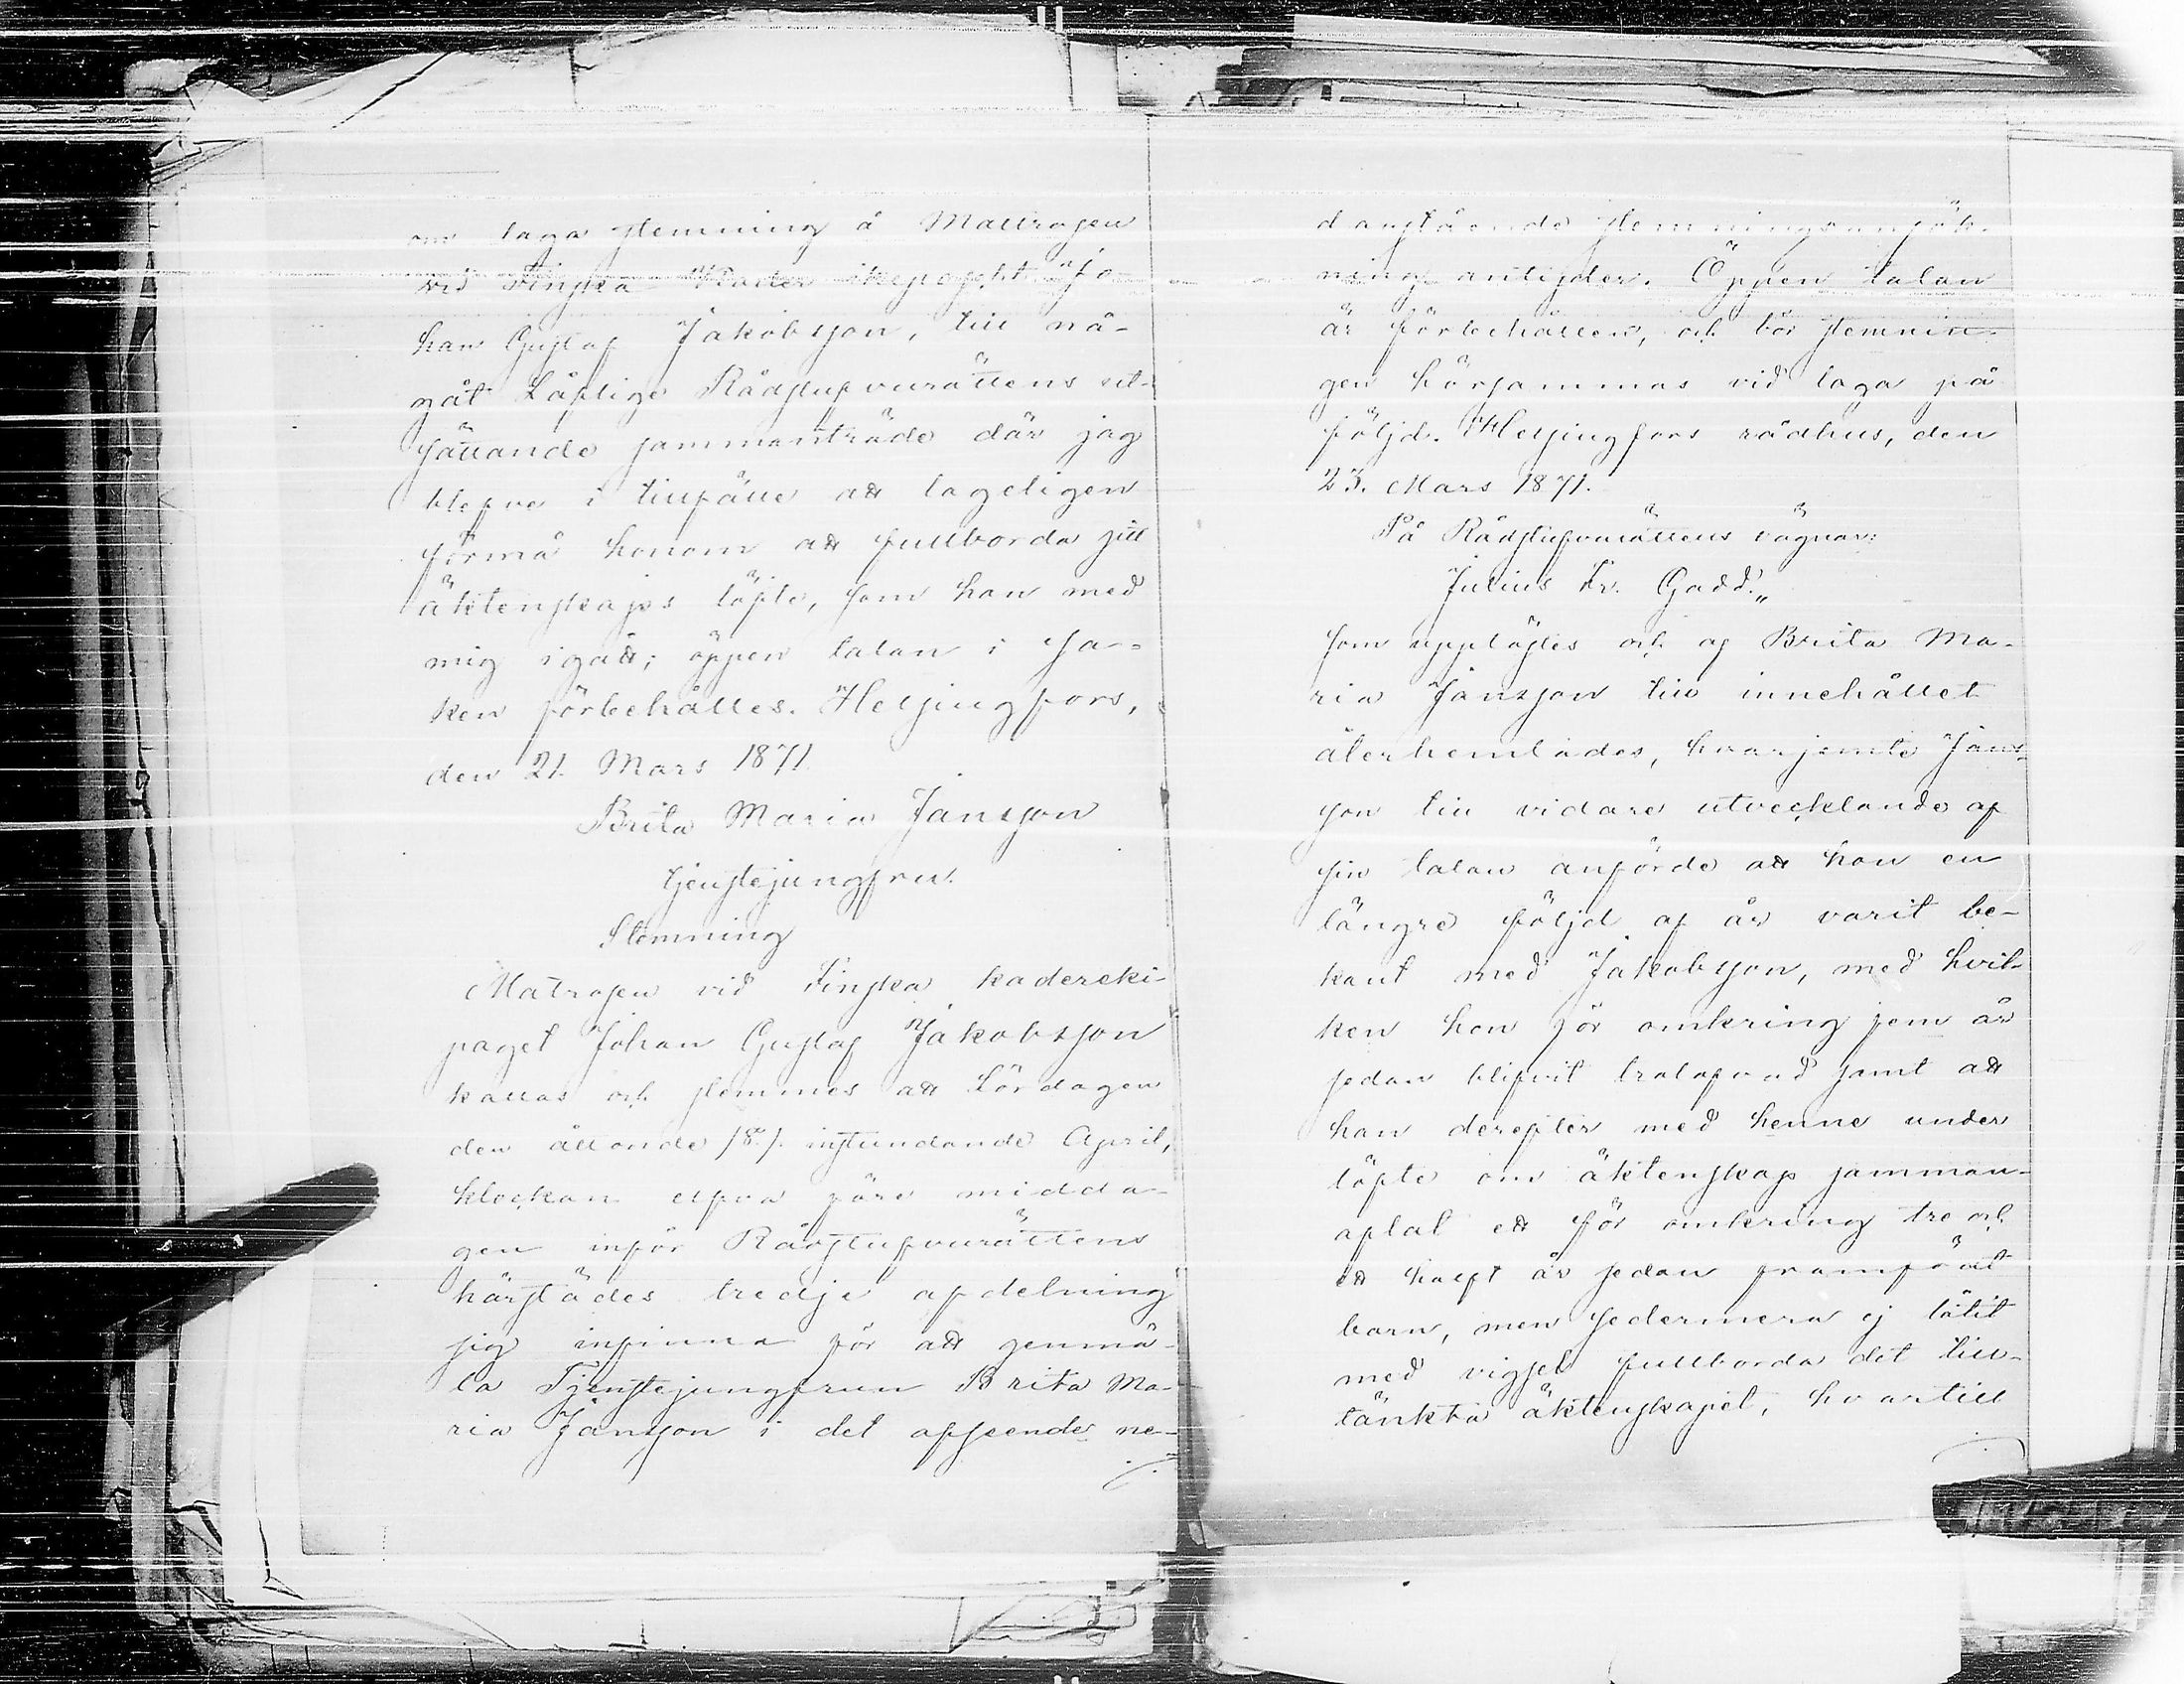 om laga stemning å Matrosen
vid Finska Kader ekipaget Jo-
han Gustaf Jakobsson, till nå-
got Låflige Rådstufvurättens sit-
tjande sammanträde där jag
blefve i tillfälle att lageligen
förmå honom att fullborda sitt
äktenskaps löfte, som han med
mig igått; öppen talan i Sa-
ken förbehålles. Helsingfors,
den 21. Mars 1871.
Brita Maria Jansson
tjenstejungfru.
Stemning
Matrosen vid Finska kadereki-
paget Johan Gustaf Jakobsson
kallas och stemmes att Lördagen
den åttonde /8./ instundande April,
klockan elfva före midda-
gen inför Rådstufvurättens
härstädes tredje afdelning
sig infinna för att genmä-
la Tjenstejungfrun Brita Ma-
ria Jansson i det afseende ne-
danstående stemningsansök-
ning antyder. Öppen talan
är förbehållen, och bör stemnin-
gen hörsammas vid laga på-
följd. Helsingfors rådhus, den
23. Mars 1871.
På Rådstufvurättens vägnar:
Julius Fr. Gadd.„
som upplästes och af Brita Ma-
ria Jansson till innehållet
återhemtades, hvarjemte Jans-
son till vidare utvecklande af
sin talan anförde att hon en
längre följd af år varit be-
kant med Jakobsson, med hvil-
ken hon för omkring fem år
sedan blifvit trolofvad samt att
han derefter med henne under
löfte om äktenskap samman-
aflat ett för omkring tre och
ett halft år sedan framfödt
barn, men sedermera ej låtit
med vigsel fullborda det till-
tänkta äktenskapet, hvartill